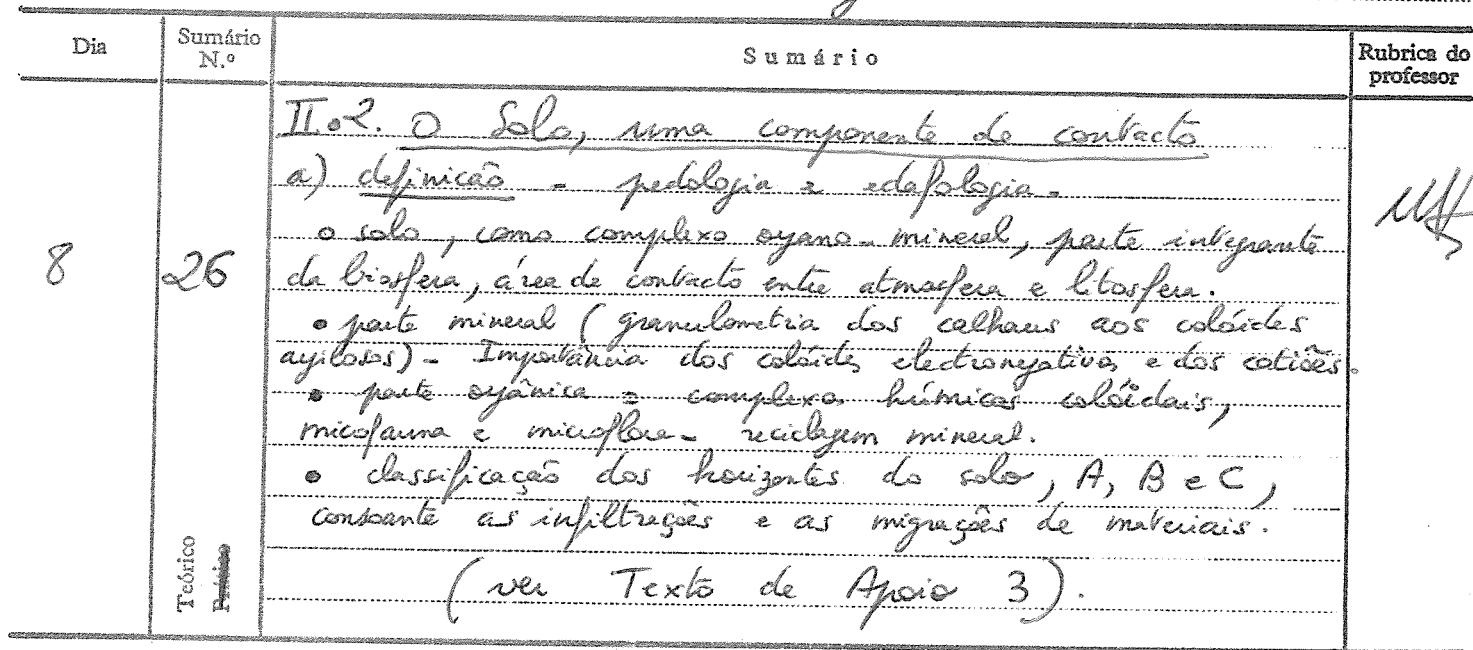 Dia
Sumário N.º
Sumário
Rubrica do professor
8
26
Teórico
II.2. O Solo, uma componente de contacto
a) definição - pedologia e edafologia -
o solo, como complexo organo-mineral, parte integrante
da biosfera, área de contacto entre atmosfera e litosfera.
• parte mineral (granulometria dos calhaus aos colóides
argilosos) - Importância dos colóides electronegativos e dos catiões.
• parte orgânica = complexos húmicos colóidais,
microfauna e microflora - reciclagem mineral.
• classificação dos horizontes do solo, A, B e C,
consoante as infiltrações e as migrações de materiais.
(ver Texto de Apoio 3).